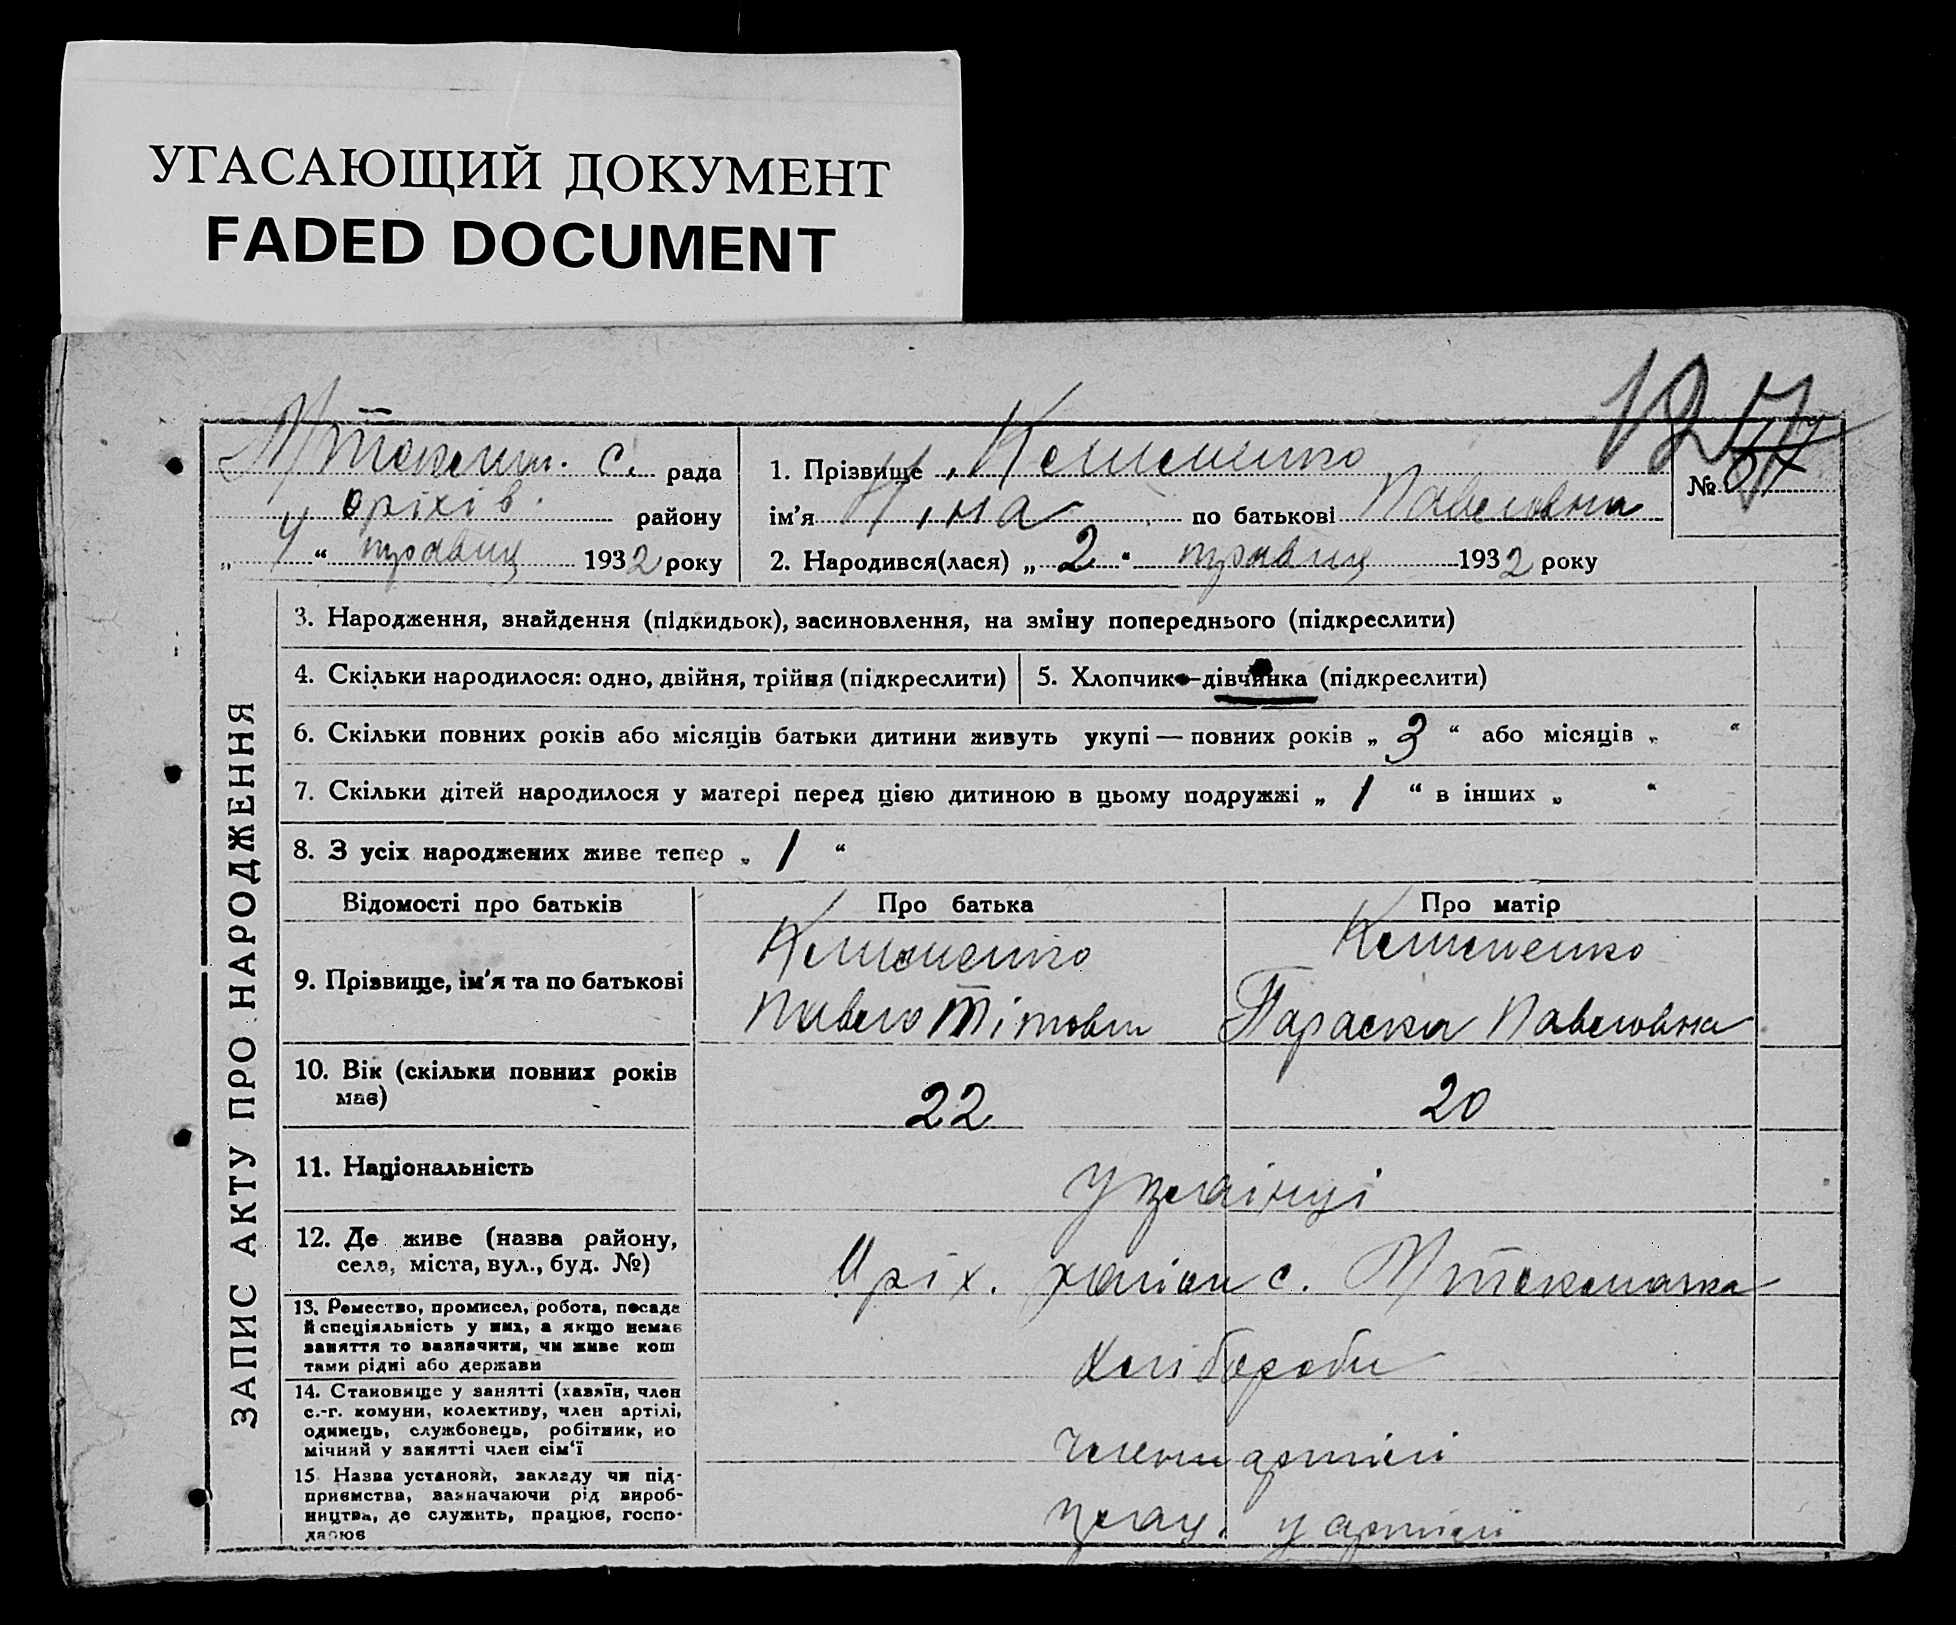 УГАСАЮЩИЙ ДОКУМЕНТ
FADED DOCUMENT
с. рада
оріхів. району
„ 4 “ травня 1932 року
1. Прізвище Клименко
ім'я Ніна по батькові Павловна
№ 67
127
2. Народився(лася) „ 2 “ травня 1932 року
ЗАПИС АКТУ ПРО НАРОДЖЕННЯ
3. Народження, знайдення (підкидьок), засиновлення, на зміну попереднього (підкреслити)
4. Скільки народилося: одно, двійня, трійня (підкреслити)
5. Хлопчик—дівчинка (підкреслити)
6. Скільки повних років або місяців батьки дитини живуть укупі — повних років „ 3 “ або місяців „ “
7. Скільки дітей народилося у матері перед цією дитиною в цьому подружжі „ 1 “ в інших „ “
8. З усіх народжених живе тепер „ 1 “
Відомості про батьків Про батька Про матір
9. Прізвище, ім'я та по батькові
Клименко
Павло Тітович
Клименко
Параска Павловна
10. Вік (скільки повних років
має)
22 20
11. Національність
українці
12. Де живе (назва району,
села, міста, вул., буд. №)
Оріх. район с.
13. Ремество, промисел, робота, посада
й спеціяльність у них, а якщо немає
заняття то зазначити, чи живе кош
тами рідні або держави
хлібороби
14. Становище у занятті (хазяїн, член
с.-г. комуни, колективу, член артілі,
одинець, службовець, робітник, по
мічний у занятті член сім'ї
члени артілі
15. Назва установи, закладу чи під-
приємства, зазначаючи рід вироб-
ництва, де служить, працює, госпо-
дарює
прац. у артілі